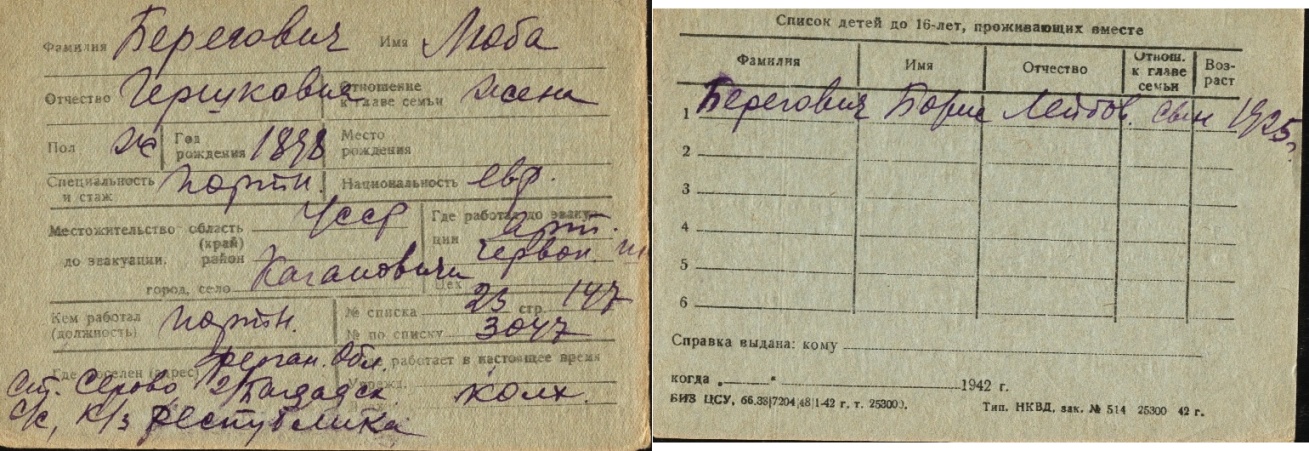 Фамилия Берегович Имя Люба
Отчество Гершкович Отношение к главе семьи жена
Пол ж Год рождения 1898 Место рождения
Специальность и стаж портн. Национальность евр.
Местожительство до эвакуации. область (край) УССР Где работал до эвакуации арт.
район червон.
город, село Кагановичи Цех
Кем работал (должность) портн. № списка 23 стр. 147
№ по списку 3047
Где поселен (адрес) Ферган. Обл. работает в настоящее время
ст. Серово, 2/Багдадск. Учрежд. колх.
с/с, к/з Республика
Список детей до 16-лет, проживающих вместе
Фамилия Имя Отчество Отнош. к главе семьи Возраст
1 Берегович Борис Лейбов. сын 1925г.
2
3
4
5
6
Справка выдана: кому
когда „ “ 1942 г.
БИЗ ЦСУ, 66.38|7204|48|1-42 г. т. 25300). Тип. НКВД, зак. № 514 25300 42 г.